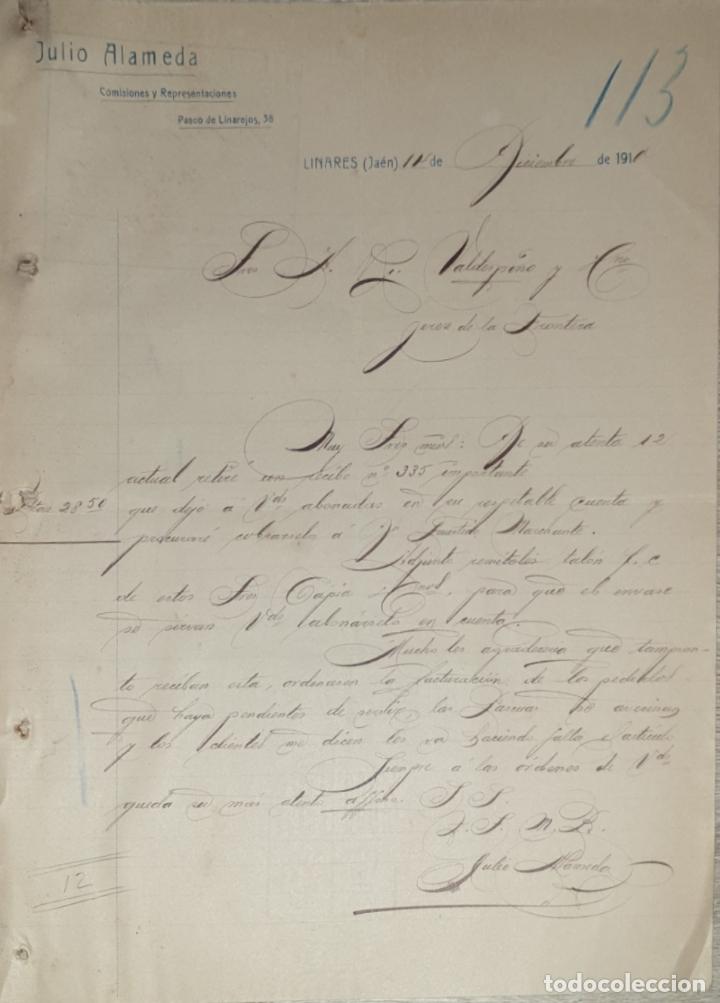 Julio Alameda
Comisiones y Representaciones
Paseo de Linarejos, 38
113
LINARES (Jaén) 14 de Diciembre de 191
Sres A. L. Valdespino y Cno
Jerez de la Frontera
Muy Sres mios: De su atenta 12
actual retiré un recibo nº 335 importante
Ptas 28 50 que dejo á Vds abonadas en su respetable cuenta y
procuraré cobrarselo á Dn Faustido Marchante.
Adjunto remitoles talón f. c
de estos Sres Tapia y para que el envase
se sirvan Vds abonárselo en cuenta.
Mucho les agradeceria que tampron-
to reciban esta, ordenasen la facturación de los pedidos
que haya pendientes de las Pascuas se avecinan
y los clientes me dicen les va haciendo falta el artículo
Siempre á las órdenes de Vds
queda su más atento affmo. S. S.
Q. S. M. B.
Julio Alameda
12
todocoleccion.net